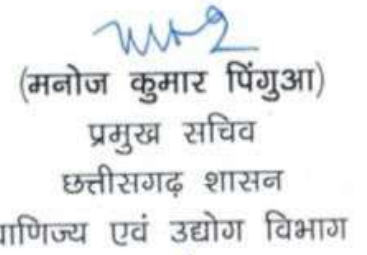 (मनोज कुमार पिंगुआ)
प्रमुख सचिव
छत्तीसगढ़ शासन
एवं उद्योग विभाग